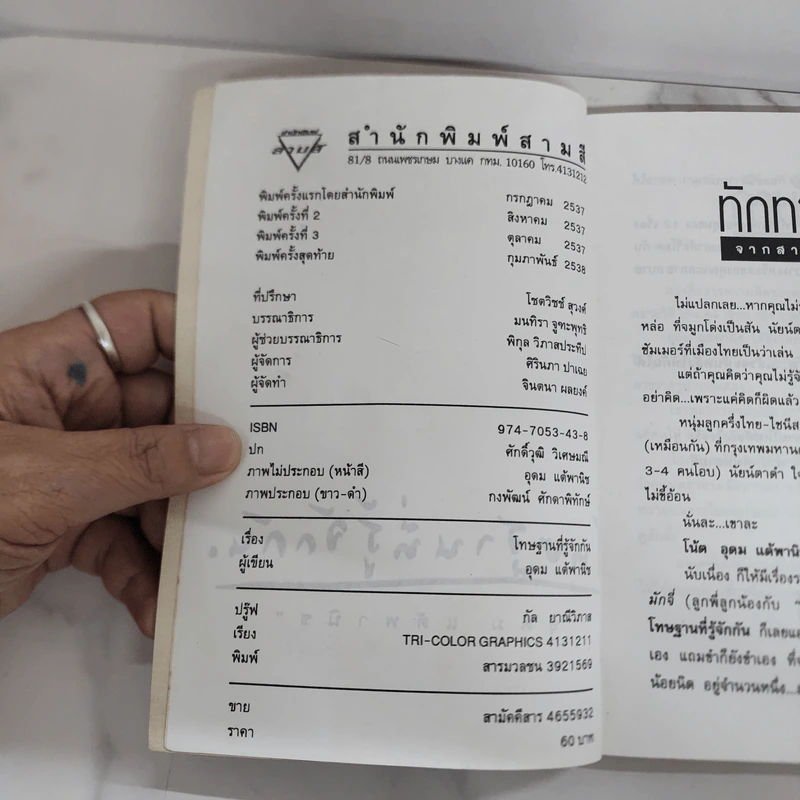 สำนักพิมพ์สามสี
สามสี
สำนักพิมพ์สามสี
81/8 ถนนเพชรเกษม บางแค กทม. 10160 โทร.4131212
พิมพ์ครั้งแรกโดยสำนักพิมพ์ กรกฎาคม 2537
พิมพ์ครั้งที่ 2 สิงหาคม 2537
พิมพ์ครั้งที่ 3 ตุลาคม 2537
พิมพ์ครั้งสุดท้าย กุมภาพันธ์ 2538
ที่ปรึกษา โชตวิชช์ สุวงศ์
บรรณาธิการ มนทิรา จูฑะพุทธิ
ผู้ช่วยบรรณาธิการ พิกุล วิภาสประทีป
ผู้จัดการ ศิรินภา ปาเฉย
ผู้จัดทำ จินตนา ผลยงค์
ISBN 974-7053-43-8
ปก ศักดิ์วุฒิ วิเศษมณี
ภาพไม่ประกอบ (หน้าสี) อุดม แต้พานิช
ภาพประกอบ (ขาว-ดำ) กงพัฒน์ ศักดาพิทักษ์
เรื่อง โทษฐานที่รู้จักกัน
ผู้เขียน อุดม แต้พานิช
ปรู๊ฟ กัล ยาณีวิภาส
เรียง TRI-COLOR GRAPHICS 4131211
พิมพ์ สารมวลชน 3921569
ขาย สามัคคีสาร 4655932
ราคา 60 บาท
ทักท
จากสา
ไม่แปลกเลย...หากคุณไม่
หล่อ ที่จมูกโด่งเป็นสัน นัยน์ต
ซัมเมอร์ที่เมืองไทยเป็นว่าเล่น
แต่ถ้าคุณคิดว่าคุณไม่รู้จั
อย่าคิด...เพราะแค่คิดก็ผิดแล้ว
หนุ่มลูกครึ่งไทย-ไชนีส
(เหมือนกัน) ที่กรุงเทพมหาน
3-4 คนโอบ) นัยน์ตาดำ ใ
ไม่ขี้อ้อน
นั่นละ...เขาละ
โน้ต อุดม แต้พานิ
นับเนื่อง ก็ให้มีเรื่องร
มักจี่ (ลูกพี่ลูกน้องกับ "
โทษฐานที่รู้จักกัน ก็เลยแ
เอง แถมขำก็ยังขำเอง ที่
น้อยนิด อยู่จำนวนหนึ่ง...